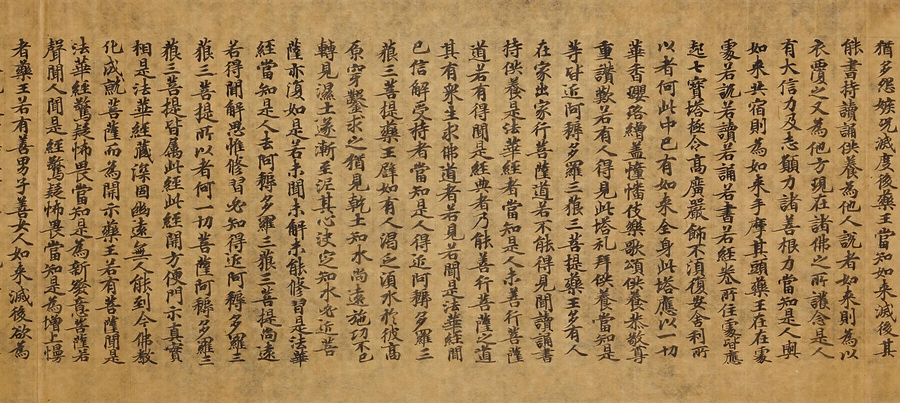 猶多怨嫉況滅度後藥王當知如來滅後其
能書持讀誦供養為他人說者如來則為以
衣覆之又為他方現在諸佛之所護念是人
有大信力及志願力諸善根力當知是人與
如來共宿則為如來手摩其頭藥王在在處
處若說若讀若誦若書若經卷所住處皆應
起七寶塔極令高廣嚴飾不須復安舍利所
以者何此中已有如來全身此塔應以一切
華香瓔珞繒蓋幢幡伎樂歌頌供養恭敬尊
重讚歎若有人得見此塔礼拜供養當知是
等皆近阿耨多羅三藐三菩提藥王多有人
在家出家行菩薩道若不能得見聞讀誦書
持供養是法華經者當知是人未善行菩薩
道若有得聞是經典者乃能善行菩薩之道
其有衆生求佛道者若見若聞是法華經聞
已信解受持者當知是人得近阿耨多羅三
藐三菩提藥王譬如有人渴乏須水於彼高
原穿鑿求之猶見乾土知水尚遠施功不已
轉見濕土遂漸至泥其心決定知水必近菩
薩亦復如是若未聞未解未能修習是法華
經當知是人去阿耨多羅三藐三菩提尚遠
若得聞解思惟修習必知得近阿耨多羅三
藐三菩提所以者何一切菩薩阿耨多羅三
藐三菩提皆屬此經此經開方便門示真實
相是法華經藏深固幽遠無人能到今佛教
化成就菩薩而為開示藥王若有菩薩聞是
法華經驚疑怖畏當知是為新發意菩薩若
聲聞人聞是經驚疑怖畏當知是為增上慢
者藥王若有善男子善女人如來滅後欲為